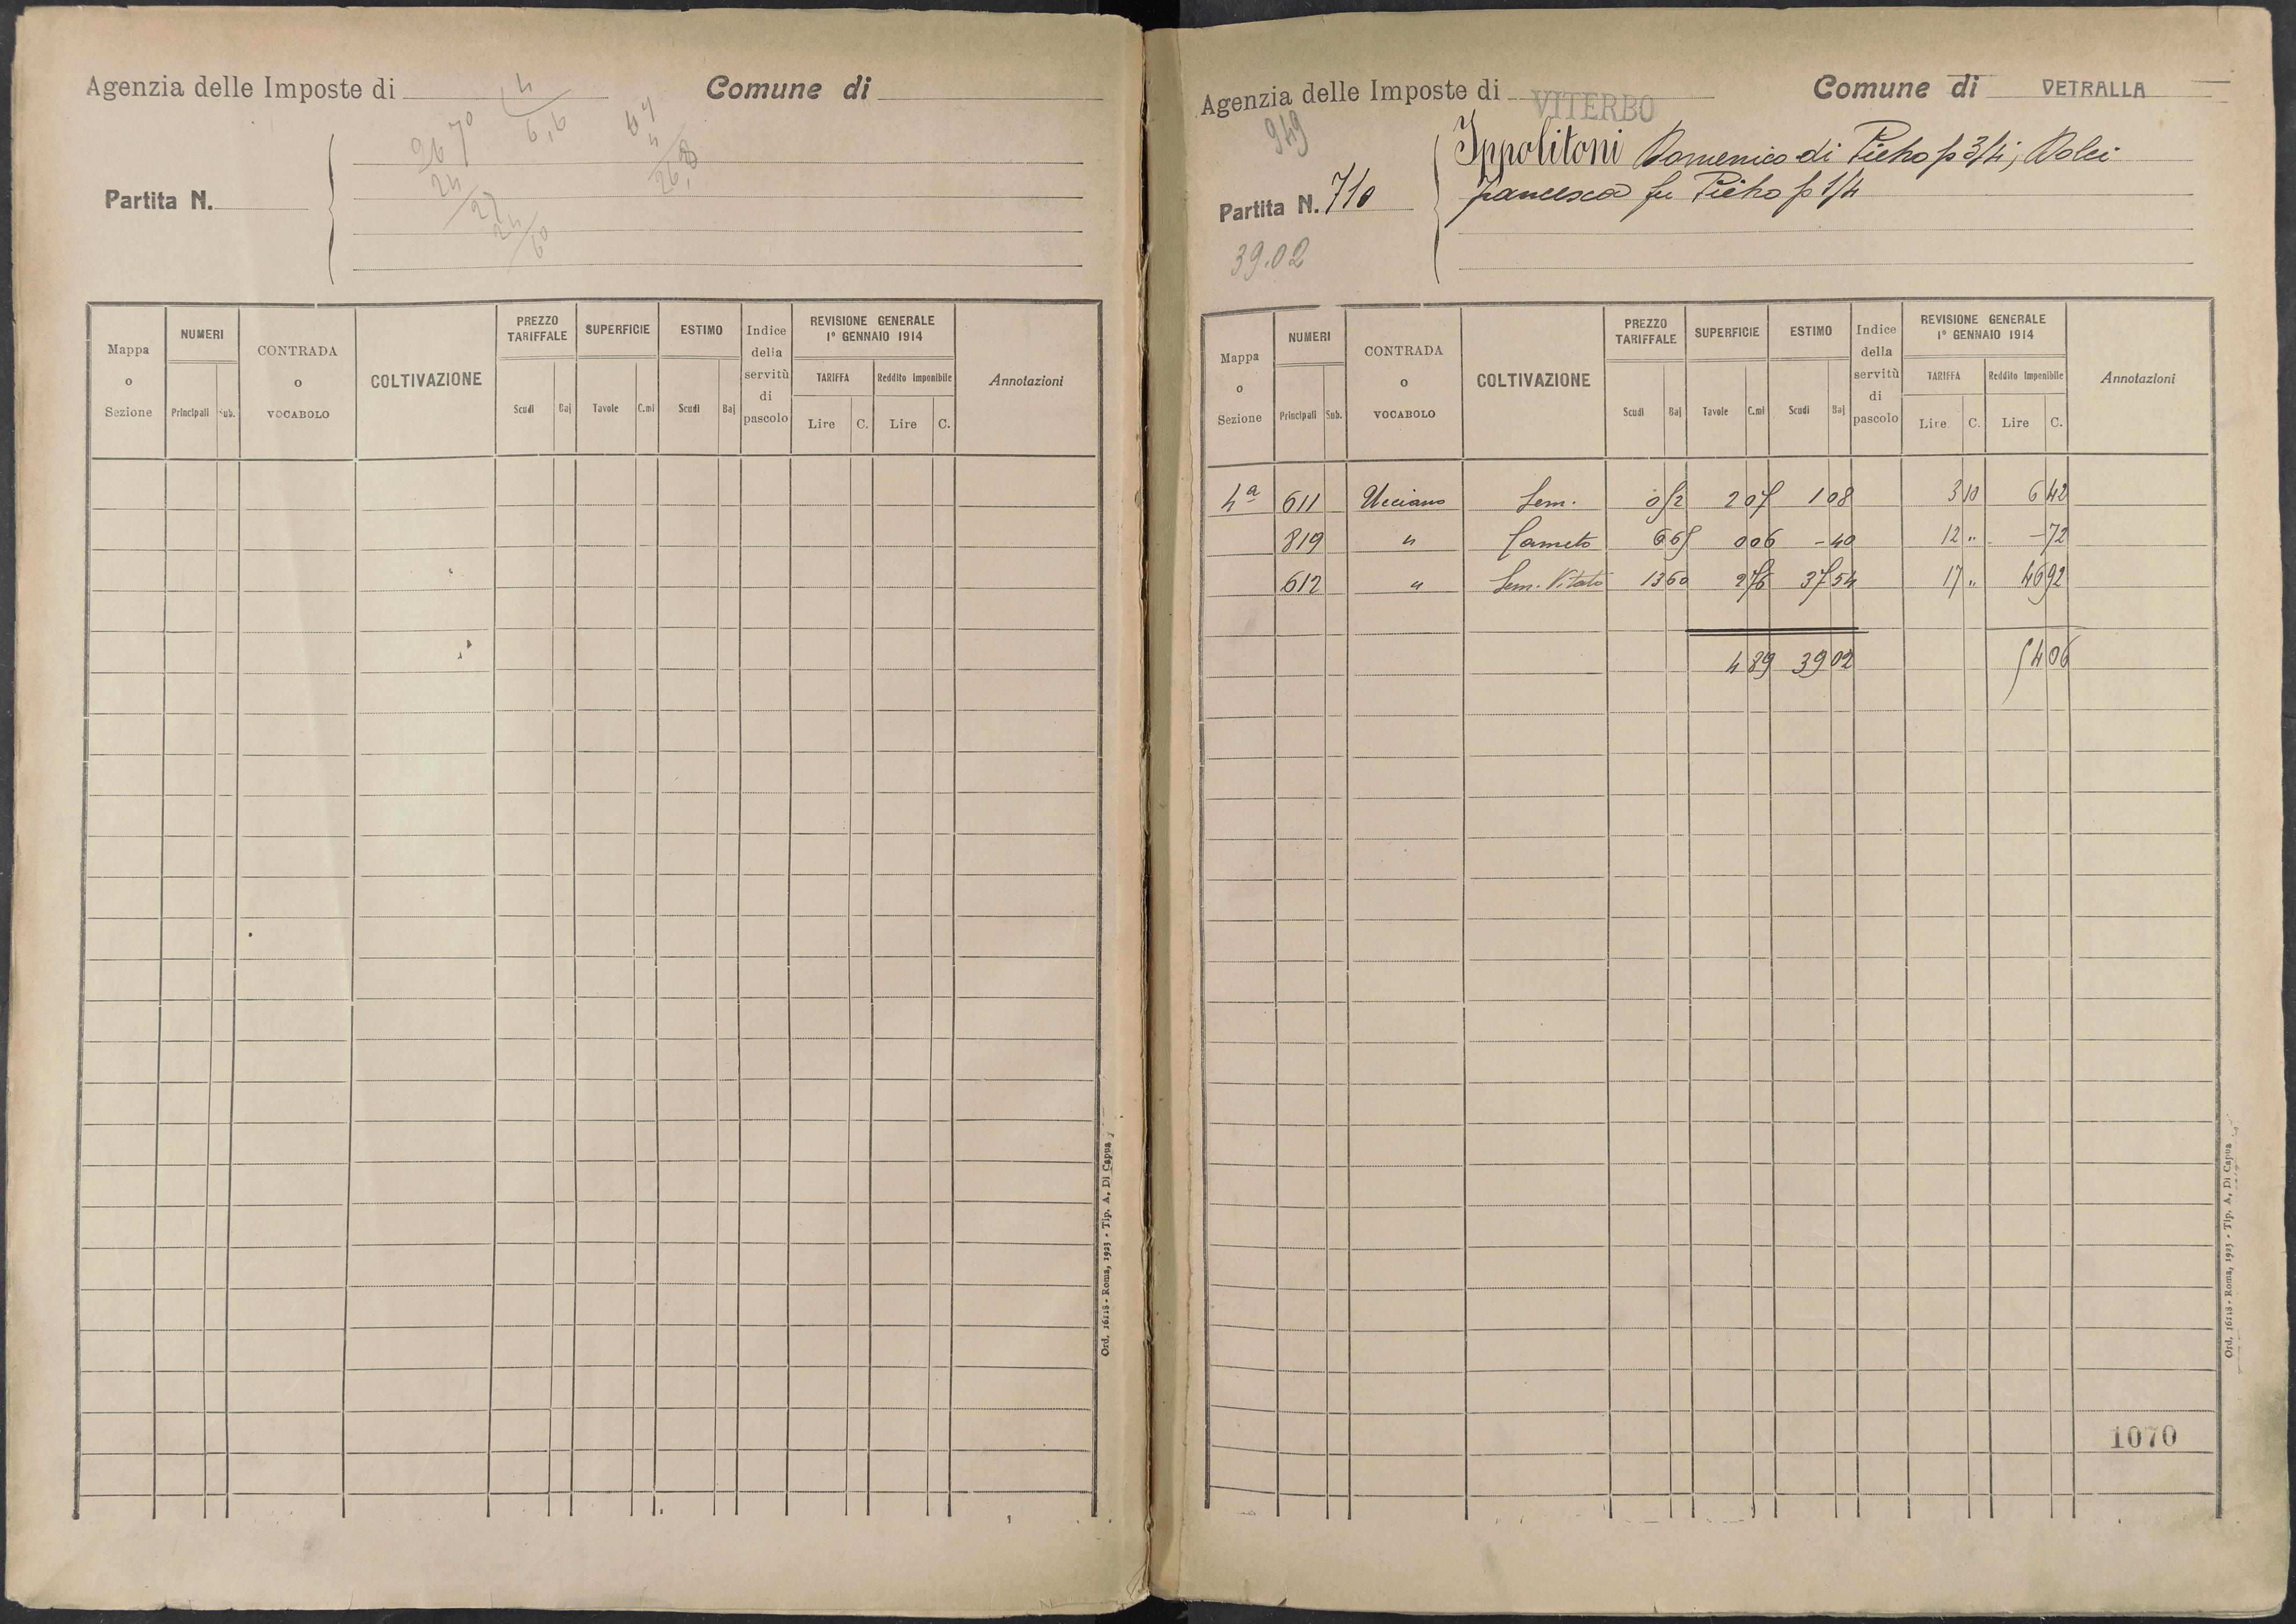 Agenzia delle Imposte di Comune di
Partita N.
Mappa o Sezione NUMERI Principali Sub. CONTRADA o VOCABOLO COLTIVAZIONE PREZZO TARIFFALE Scudi Baj SUPERFICIE Tavole C.mi ESTIMO Scudi Baj Indice della servitù di pascolo REVISIONE GENERALE 1° GENNAIO 1914 TARIFFA Lire C. Reddito Imponibile Lire C. Annotazioni
Ord. 16118 - Roma, 1923 - Tip. A. Di Capua
Agenzia delle Imposte di VITERBO Comune di VETRALLA
949
Ippolitoni Domenico di Pietro p 3/4; Dolci
Partita N. 710 Francesca fu Pietro p 1/4
39.02
Mappa o Sezione NUMERI Principali Sub. CONTRADA o VOCABOLO COLTIVAZIONE PREZZO TARIFFALE Scudi Baj SUPERFICIE Tavole C.mi ESTIMO Scudi Baj Indice della servitù di pascolo REVISIONE GENERALE 1° GENNAIO 1914 TARIFFA Lire C. Reddito Imponibile Lire C. Annotazioni
4ª 611 Ucciano Sem. 0 52 2 07 1 08 3 10 6 42
819 " Canneto 6 65 0 06 - 40 12 " - 72
612 " Sem. Vitato 13 60 2 76 37 54 17 " 46 92
4 89 39 02 54 06
1070
Ord. 16118 - Roma, 1923 - Tip. A. Di Capua